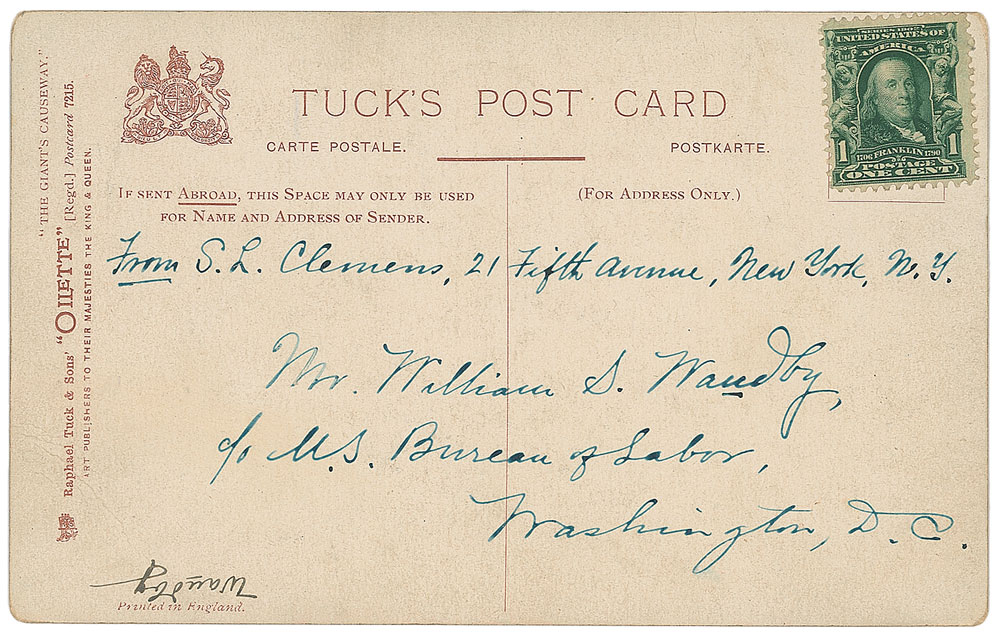 TUCK'S POST CARD
CARTE POSTALE.
POSTKARTE.
IF SENT ABROAD, THIS SPACE MAY ONLY BE USED
FOR NAME AND ADDRESS OF SENDER.
(FOR ADDRESS ONLY.)
SERIES 1902
UNITED STATES OF
AMERICA
1706 FRANKLIN 1790
1 1
POSTAGE
ONE CENT
From S. L. Clemens, 21 Fifth Avenue, New York, N.Y.
Mr. William S. Waudby,
c/o U.S. Bureau of Labor,
Washington, D.C.
"THE GIANT'S CAUSEWAY."
Raphael Tuck & Sons' "OILETTE" [Regd.] Postcard 7215.
ART PUBLISHERS TO THEIR MAJESTIES THE KING & QUEEN.
Waudby
Printed in England.